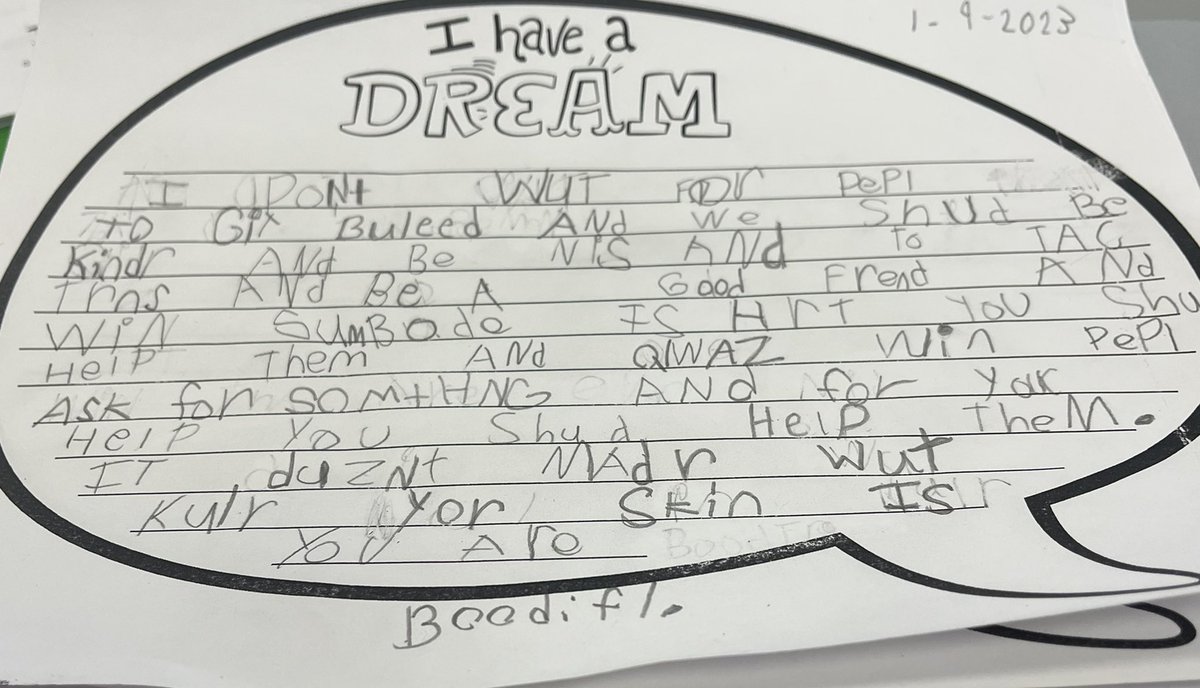 1-9-2023
I have a
DREAM
I DONt WUT FOR PePl
TO Git Buleed ANd We Shud Be
Kindr ANd Be NIS ANd To TAC
Trns ANd Be A Good Frend A Nd
WiN SumBode IS Hrt You Shu
Help Them ANd QWAZ Win PePl
Ask for SOMtHNG ANd for yor
Help You Shud Help TheM.
IT duZNt MAdr Wut
Kulr Yor Skin IS
You Are
Boodifl.